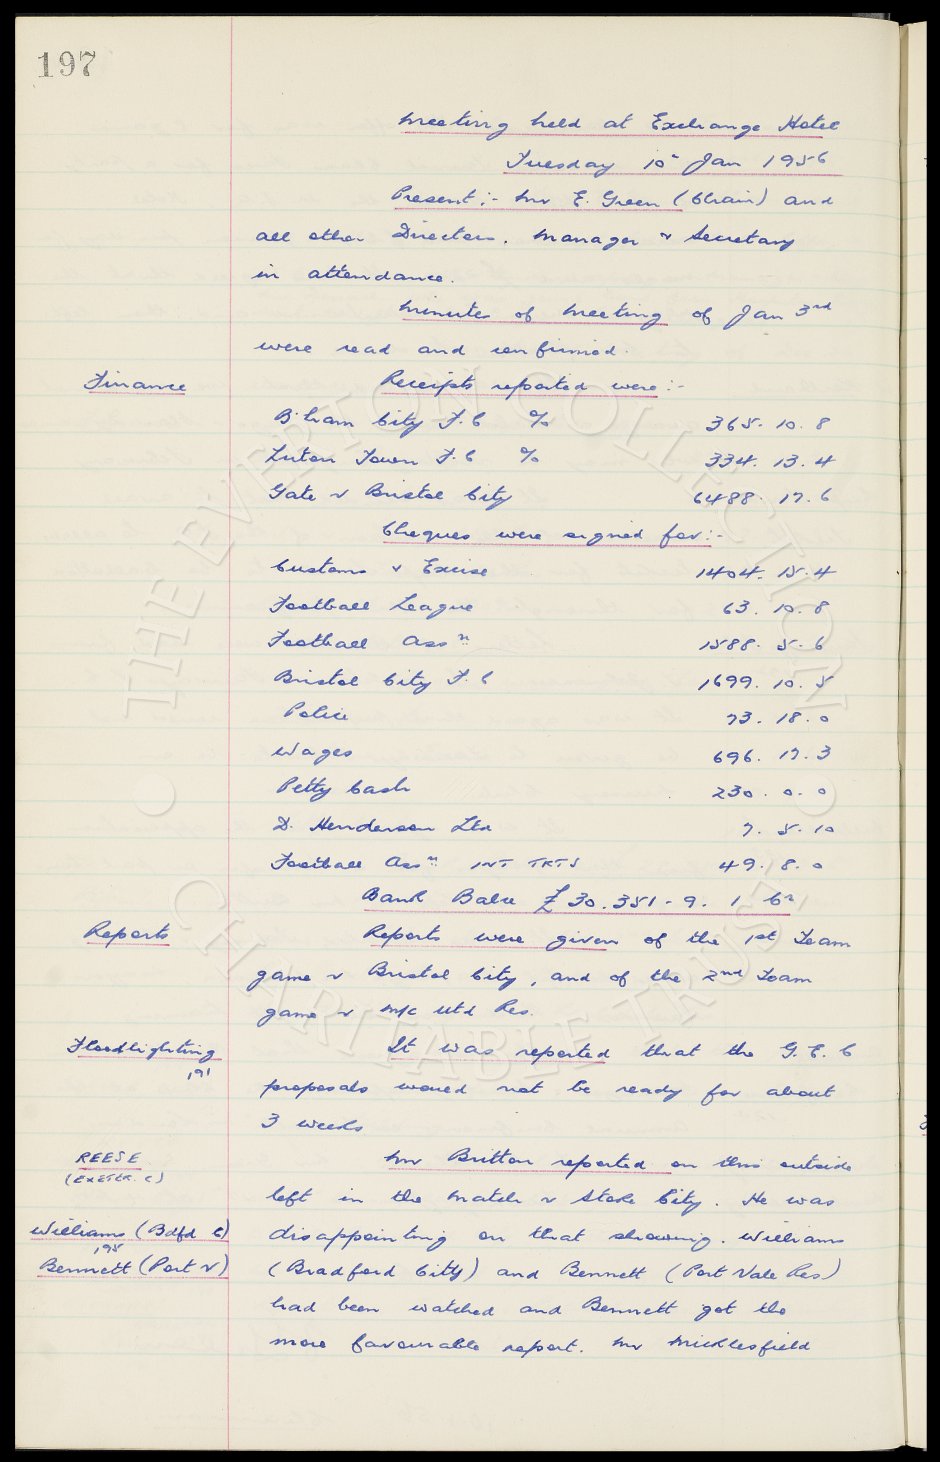 197
Meeting held at Exchange Hotel
Tuesday 10th Jan 1956
Present :- Mr E. Green (Chair) and
all other Directors. Manager & Secretary
in attendance.
Minutes of Meeting of Jan 3rd
were read and confirmed.
Finance Receipts reported were :-
B'ham City F.C % 365. 10. 8
Luton Town F.C % 334. 13. 4
Gate v Bristol City 6488. 17. 6
Cheques were signed for :-
Customs & Excise 1404. 15. 4
Football League 63. 10. 8
Football Assn 1588. 5. 6
Bristol City F.C 1699. 10. 5
Police 73. 18. 0
Wages 696. 17. 3
Petty Cash 230. 0. 0
D. Henderson Ltd 7. 5. 10
Football Assn INT TKTS 49. 8. 0
Bank Balce £30.351. 9. 1 Cr
Reports Reports were given of the 1st Team
game v Bristol City, and of the 2nd Team
game v M/c Utd Res.
Floodlighting It was reported that the G.E.C
191
proposals would not be ready for about
3 weeks
REESE Mr Britton reported on this outside
(EXETER. C)
left in the match v Stoke City. He was
Williams (Bdfd C) disappointing on that showing. Williams
195
Bennett (Port V) (Bradford City) and Bennett (Port Vale Res)
had been watched and Bennett got the
more favourable report. Mr Micklesfield
THE EVERTON COLLECTION
CHARITABLE TRUST